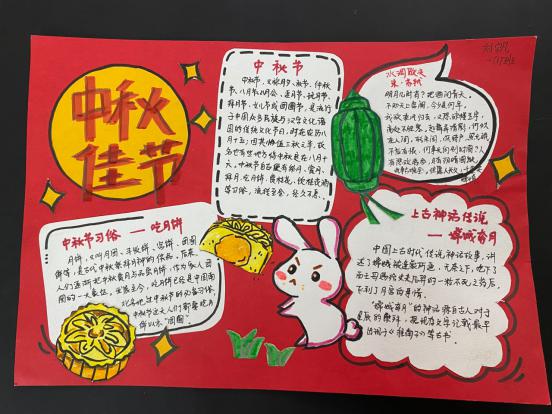 中秋
佳节
中秋节
中秋节，又称月夕、秋节、仲秋
节、八月节、八月会、追月节、玩月节、
拜月节、女儿节或团圆节，是流行
于中国众多民族与汉字文化诸
国的传统文化节日，时在农历八
月十五；因其恰值三秋之半，故
名，也有些地方将中秋定在八月十
六。中秋节自古便有祭月、赏月、
拜月、吃月饼、赏桂花、饮桂花酒
等习俗，流传至今，经久不息。
水调歌头
宋·苏轼
明月几时有？把酒问青天。
不知天上宫阙，今夕是何年。
我欲乘风归去，又恐琼楼玉宇，
高处不胜寒。起舞弄清影，何似
在人间。转朱阁，低绮户，照无眠。
不应有恨，何事长向别时圆？人
有悲欢离合，月有阴晴圆缺，
此事古难全。但愿人长久，千里共
婵娟。
中秋节习俗 — 吃月饼
月饼，又叫月团、丰收饼、宫饼、团圆
饼等，是古代中秋祭拜月神的供品，后来
人们逐渐把中秋赏月与品尝月饼，作为家人团
圆的一大象征。
中秋节之夜人们都要吃月
饼以示“团圆”
上古神话传说
— 嫦娥奔月
中国上古时代传说神话故事，讲
述了嫦娥被逢蒙所逼，无奈之下，吃下了
西王母赐给丈夫后羿的一粒不死之药后，
飞到了月宫的事情。
“嫦娥奔月”的神话源自古人对于
星辰的崇拜，据现存文字记载最早
出现于《淮南子》等古书。